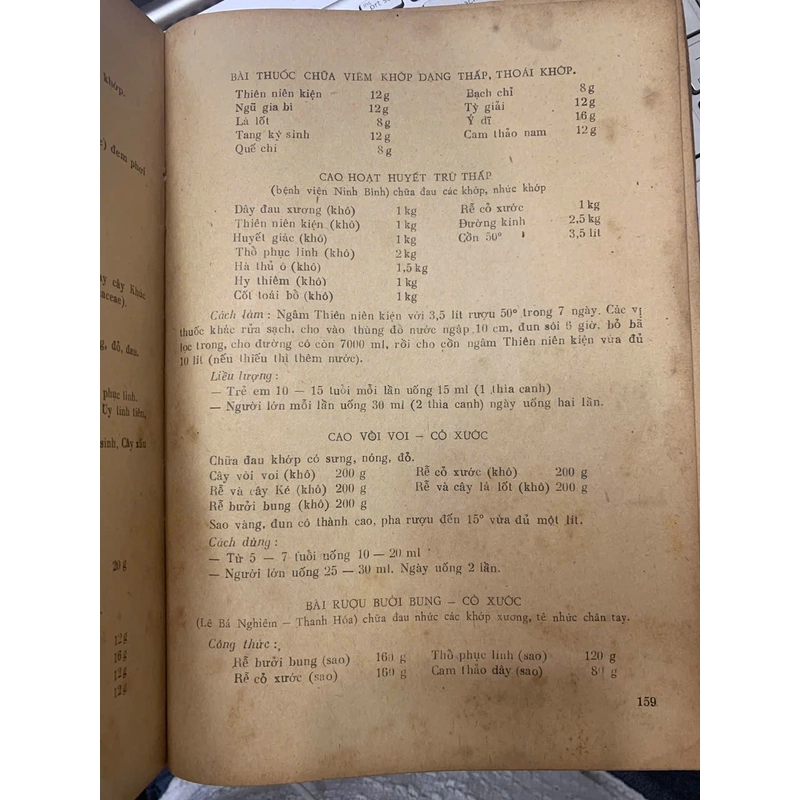 khớp.
) đem phơi
y cây Khúc
aceae).
g, đỏ, đau.
phục linh.
Uy linh tiên,
sinh, Cây xấu
20 g
12g
16g
12g
12g
BÀI THUỐC CHỮA VIÊM KHỚP DẠNG THẤP, THOÁI KHỚP.
Thiên niên kiện 12g Bạch chỉ 8g
Ngũ gia bì 12g Tỳ giải 12g
Lá lốt 8g Ý dĩ 16g
Tang ký sinh 12g Cam thảo nam 12g
Quế chi 8g
CAO HOẠT HUYẾT TRỪ THẤP
(bệnh viện Ninh Bình) chữa đau các khớp, nhức khớp
Dây đau xương (khô) 1 kg Rễ cỏ xước 1 kg
Thiên niên kiện (khô) 1 kg Đường kính 2,5 kg
Huyết giác (khô) 1 kg Cồn 50° 3,5 lít
Thổ phục linh (khô) 2 kg
Hà thủ ô (khô) 1,5 kg
Hy thiêm (khô) 1 kg
Cốt toái bồ (khô) 1 kg
Cách làm : Ngâm Thiên niên kiện với 3,5 lít rượu 50° trong 7 ngày. Các vị
thuốc khác rửa sạch, cho vào thùng đổ nước ngập 10 cm, đun sôi 6 giờ, bỏ bã
lọc trong, cho đường cô còn 7000 ml, rồi cho cồn ngâm Thiên niên kiện vừa đủ
10 lít (nếu thiếu thì thêm nước).
Liều lượng :
— Trẻ em 10 — 15 tuổi mỗi lần uống 15 ml (1 thìa canh)
— Người lớn mỗi lần uống 30 ml (2 thìa canh) ngày uống hai lần.
CAO VÒI VOI — CỎ XƯỚC
Chữa đau khớp có sưng, nóng, đỏ.
Cây vòi voi (khô) 200 g Rễ cỏ xước (khô) 200 g
Rễ và cây Ké (khô) 200 g Rễ và cây lá lốt (khô) 200 g
Rễ bưởi bung (khô) 200 g
Sao vàng, đun cô thành cao, pha rượu đến 15° vừa đủ một lít.
Cách dùng :
— Từ 5 — 7 tuổi uống 10 — 20 ml
— Người lớn uống 25 — 30 ml. Ngày uống 2 lần.
BÀI RƯỢU BƯỞI BUNG — CỎ XƯỚC
(Lê Bá Nghiêm — Thanh Hóa) chữa đau nhức các khớp xương, tê nhức chân tay.
Công thức :
Rễ bưởi bung (sao) 160 g Thổ phục linh (sao) 120 g
Rễ cỏ xước (sao) 160 g Cam thảo dây (sao) 80 g
159